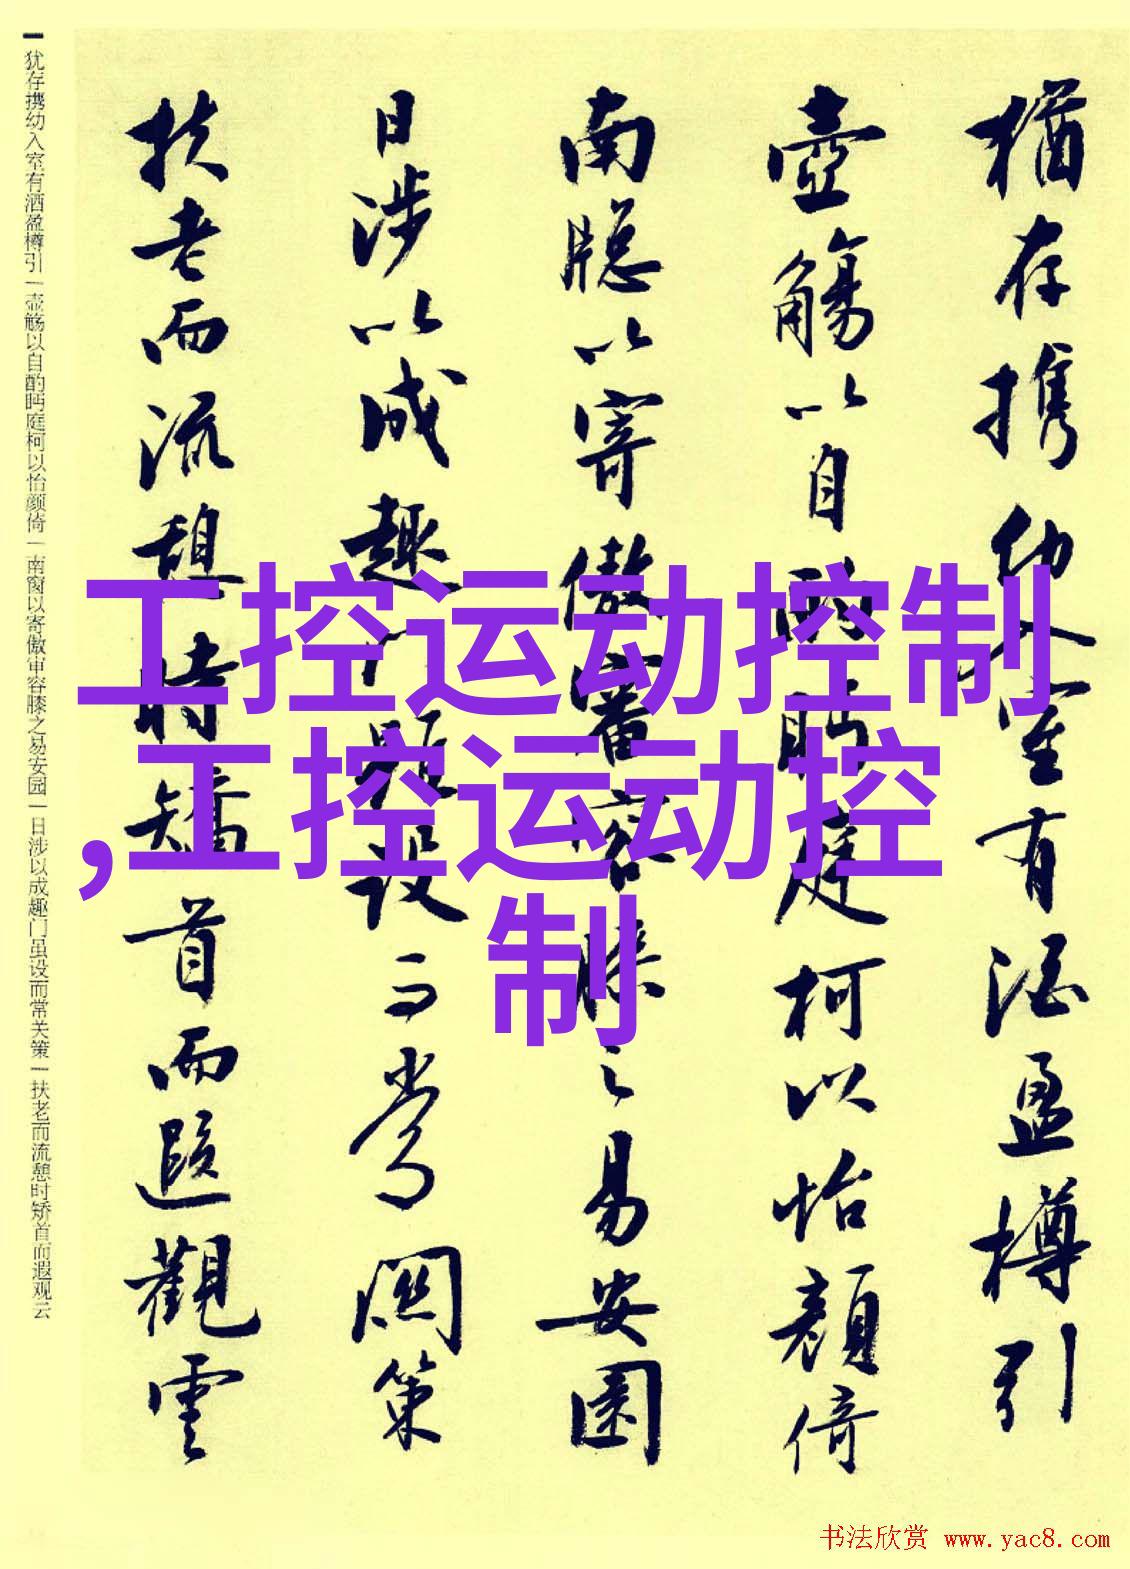 犹存携幼入室有酒盈樽引 | 壶觞以自酌眄庭柯以怡颜倚 | 南窗以寄傲审容膝之易安园 | 日涉以成趣门虽设而常关策 | 扶老而流憩时矫首而遐观云
猶存携幼入室有酒盈樽引
壺觴以自酌眄庭柯以怡顔倚
南牕以寄傲審容膝之易安園
日涉以成趣門雖設而常關策
扶老而流憩時矯首而遐觀雲
工控运动控制
,工控运动控
制
书法欣赏 www.yac8.com